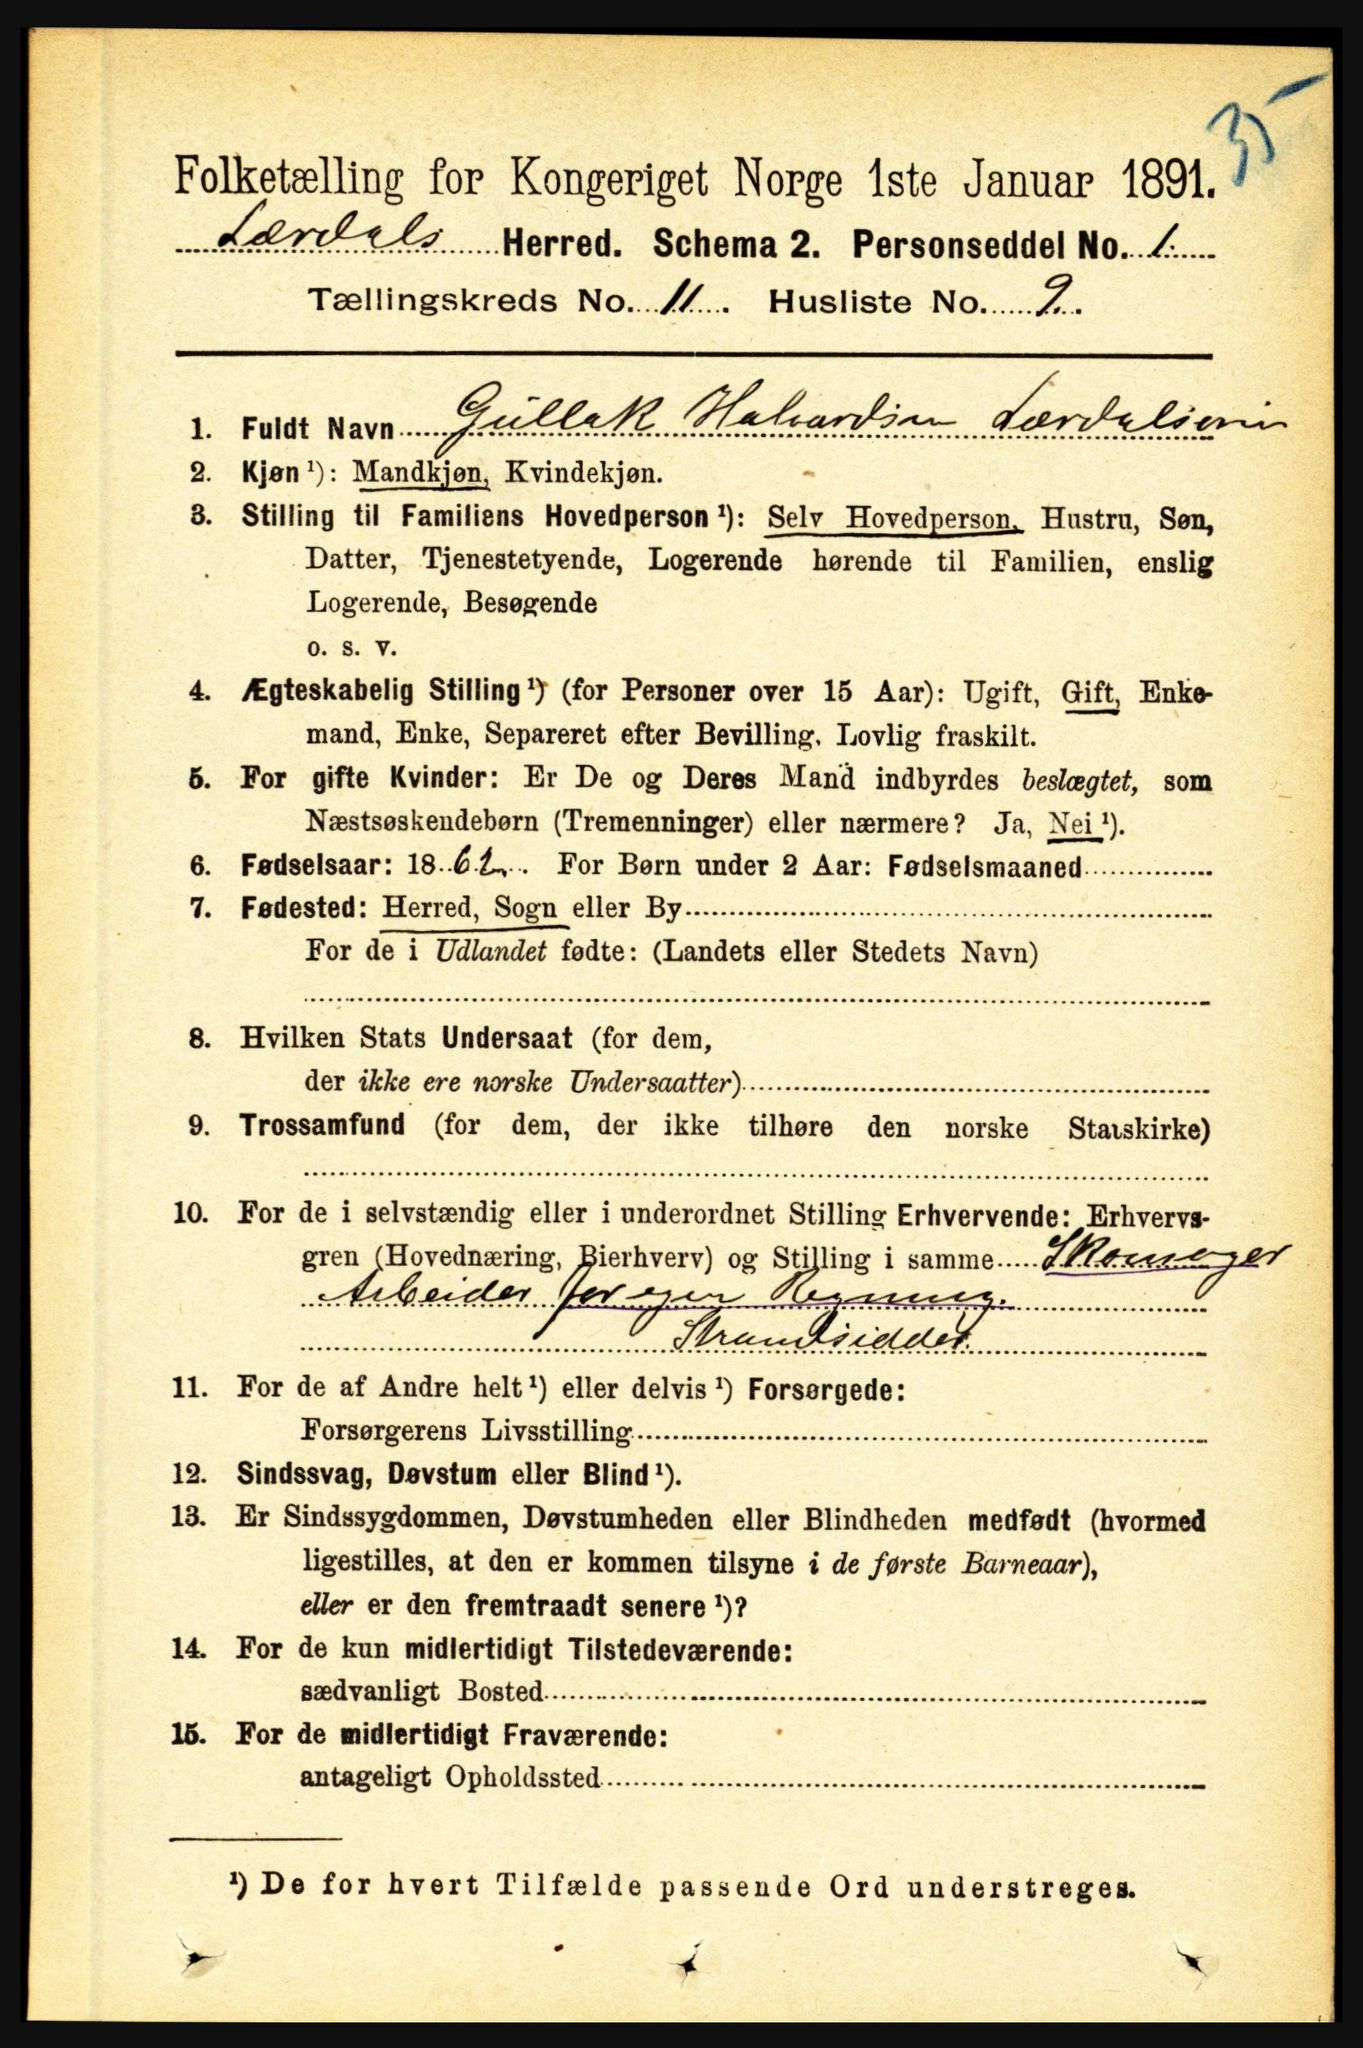 35
Folketælling for Kongeriget Norge 1ste Januar 1891.
Lærdals Herred. Schema 2. Personseddel No. 1.
Tællingskreds No. 11. Husliste No. 9.
1. Fuldt Navn Gullak Halvardsen Lærdalsøren
2. Kjøn ¹): Mandkjøn, Kvindekjøn.
3. Stilling til Familiens Hovedperson ¹): Selv Hovedperson, Hustru, Søn,
Datter, Tjenestetyende, Logerende hørende til Familien, enslig
Logerende, Besøgende
o. s. v.
4. Ægteskabelig Stilling ¹) (for Personer over 15 Aar): Ugift, Gift, Enke-
mand, Enke, Separeret efter Bevilling. Lovlig fraskilt.
5. For gifte Kvinder: Er De og Deres Mand indbyrdes beslægtet, som
Næstsøskendebørn (Tremenninger) eller nærmere? Ja, Nei ¹).
6. Fødselsaar: 1862. For Børn under 2 Aar: Fødselsmaaned
7. Fødested: Herred, Sogn eller By
For de i Udlandet fødte: (Landets eller Stedets Navn)
8. Hvilken Stats Undersaat (for dem,
der ikke ere norske Undersaatter)
9. Trossamfund (for dem, der ikke tilhøre den norske Statskirke)
10. For de i selvstændig eller i underordnet Stilling Erhvervende: Erhvervs-
gren (Hovednæring, Bierhverv) og Stilling i samme Skomager
Arbeider for egen Regning.
Strandsidder.
11. For de af Andre helt ¹) eller delvis ¹) Forsørgede:
Forsørgerens Livsstilling
12. Sindssvag, Døvstum eller Blind ¹).
13. Er Sindssygdommen, Døvstumheden eller Blindheden medfødt (hvormed
ligestilles, at den er kommen tilsyne i de første Barneaar),
eller er den fremtraadt senere ¹)?
14. For de kun midlertidigt Tilstedeværende:
sædvanligt Bosted
15. For de midlertidigt Fraværende:
antageligt Opholdssted
¹) De for hvert Tilfælde passende Ord understreges.